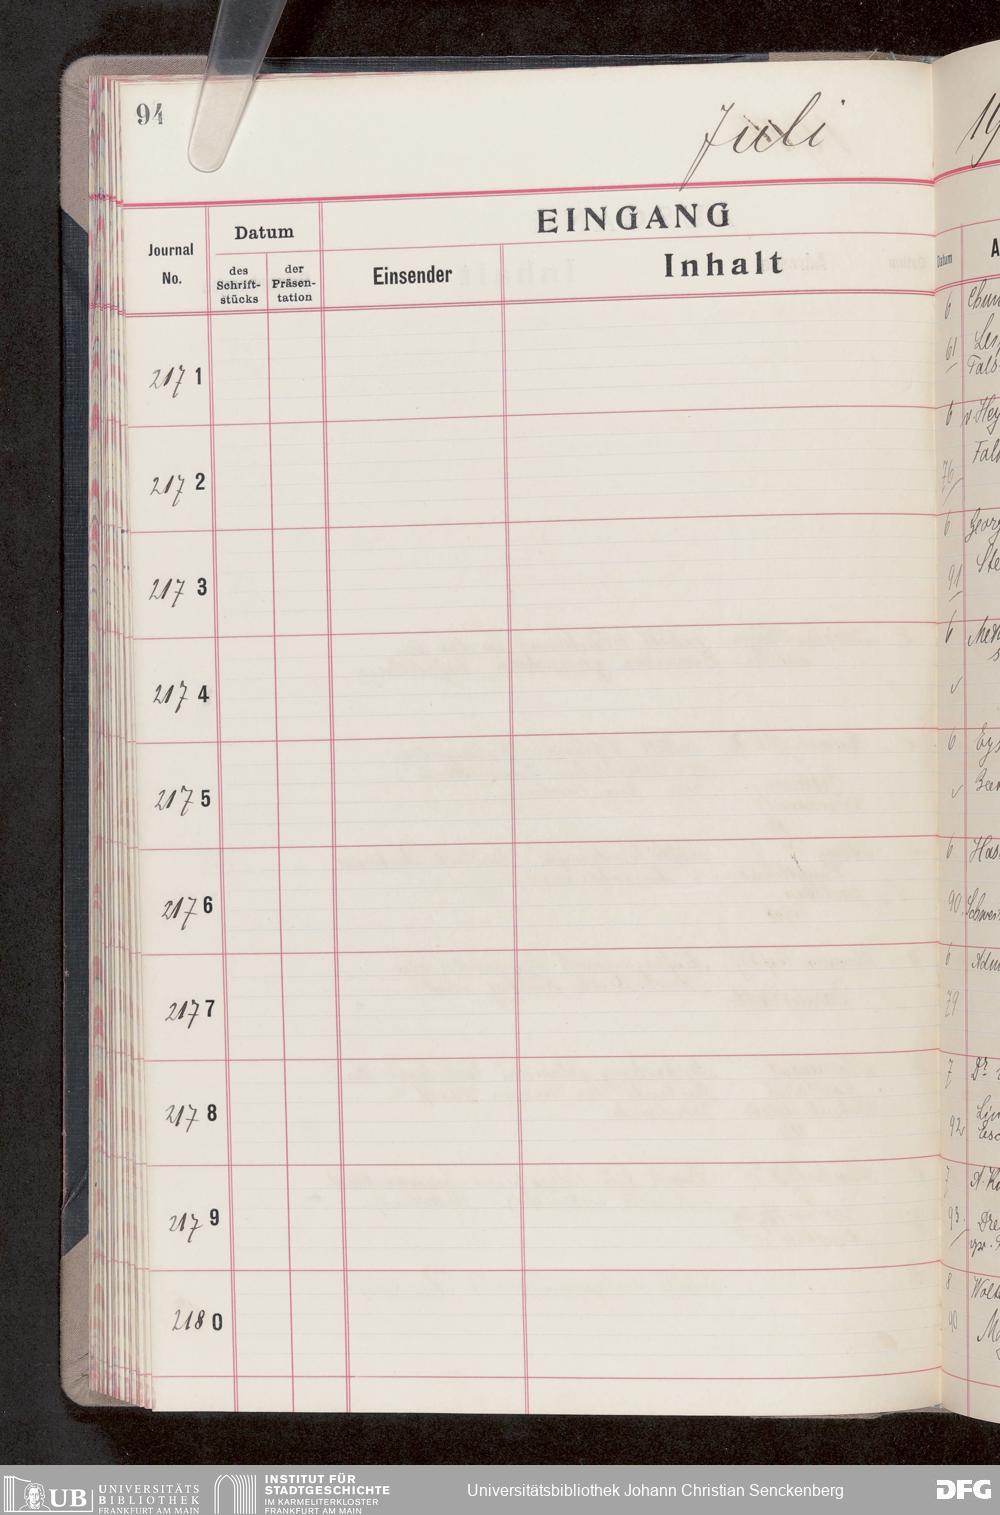 94
Juli
19
EINGANG
Journal
No.
Datum
des
Schrift-
stücks
der
Präsen-
tation
Einsender
Inhalt
Datum
A
2171
2172
2173
2174
2175
2176
2177
2178
2179
2180
6
61
6
76
6
91
6
6
6
90
6
79
7
92
7
93
8
90
UB
UNIVERSITÄTS
BIBLIOTHEK
FRANKFURT AM MAIN
INSTITUT FÜR
STADTGESCHICHTE
IM KARMELITERKLOSTER
FRANKFURT AM MAIN
Universitätsbibliothek Johann Christian Senckenberg
DFG